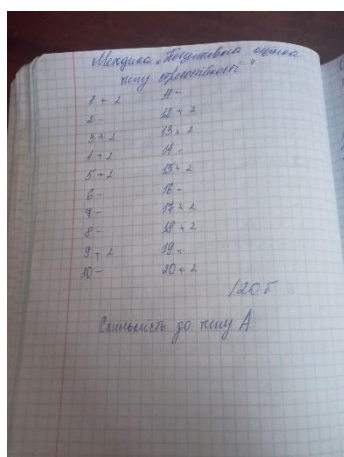 Методика „Позитивна оцінка
типу особистості"
1 + 2
2 -
3 + 2
4 + 2
5 + 2
6 -
7 -
8 -
9 + 2
10 -
11 -
12 + 2
13 + 2
14 -
15 + 2
16 -
17 + 2
18 + 2
19 -
20 + 2
/20 б
Схильність до типу А